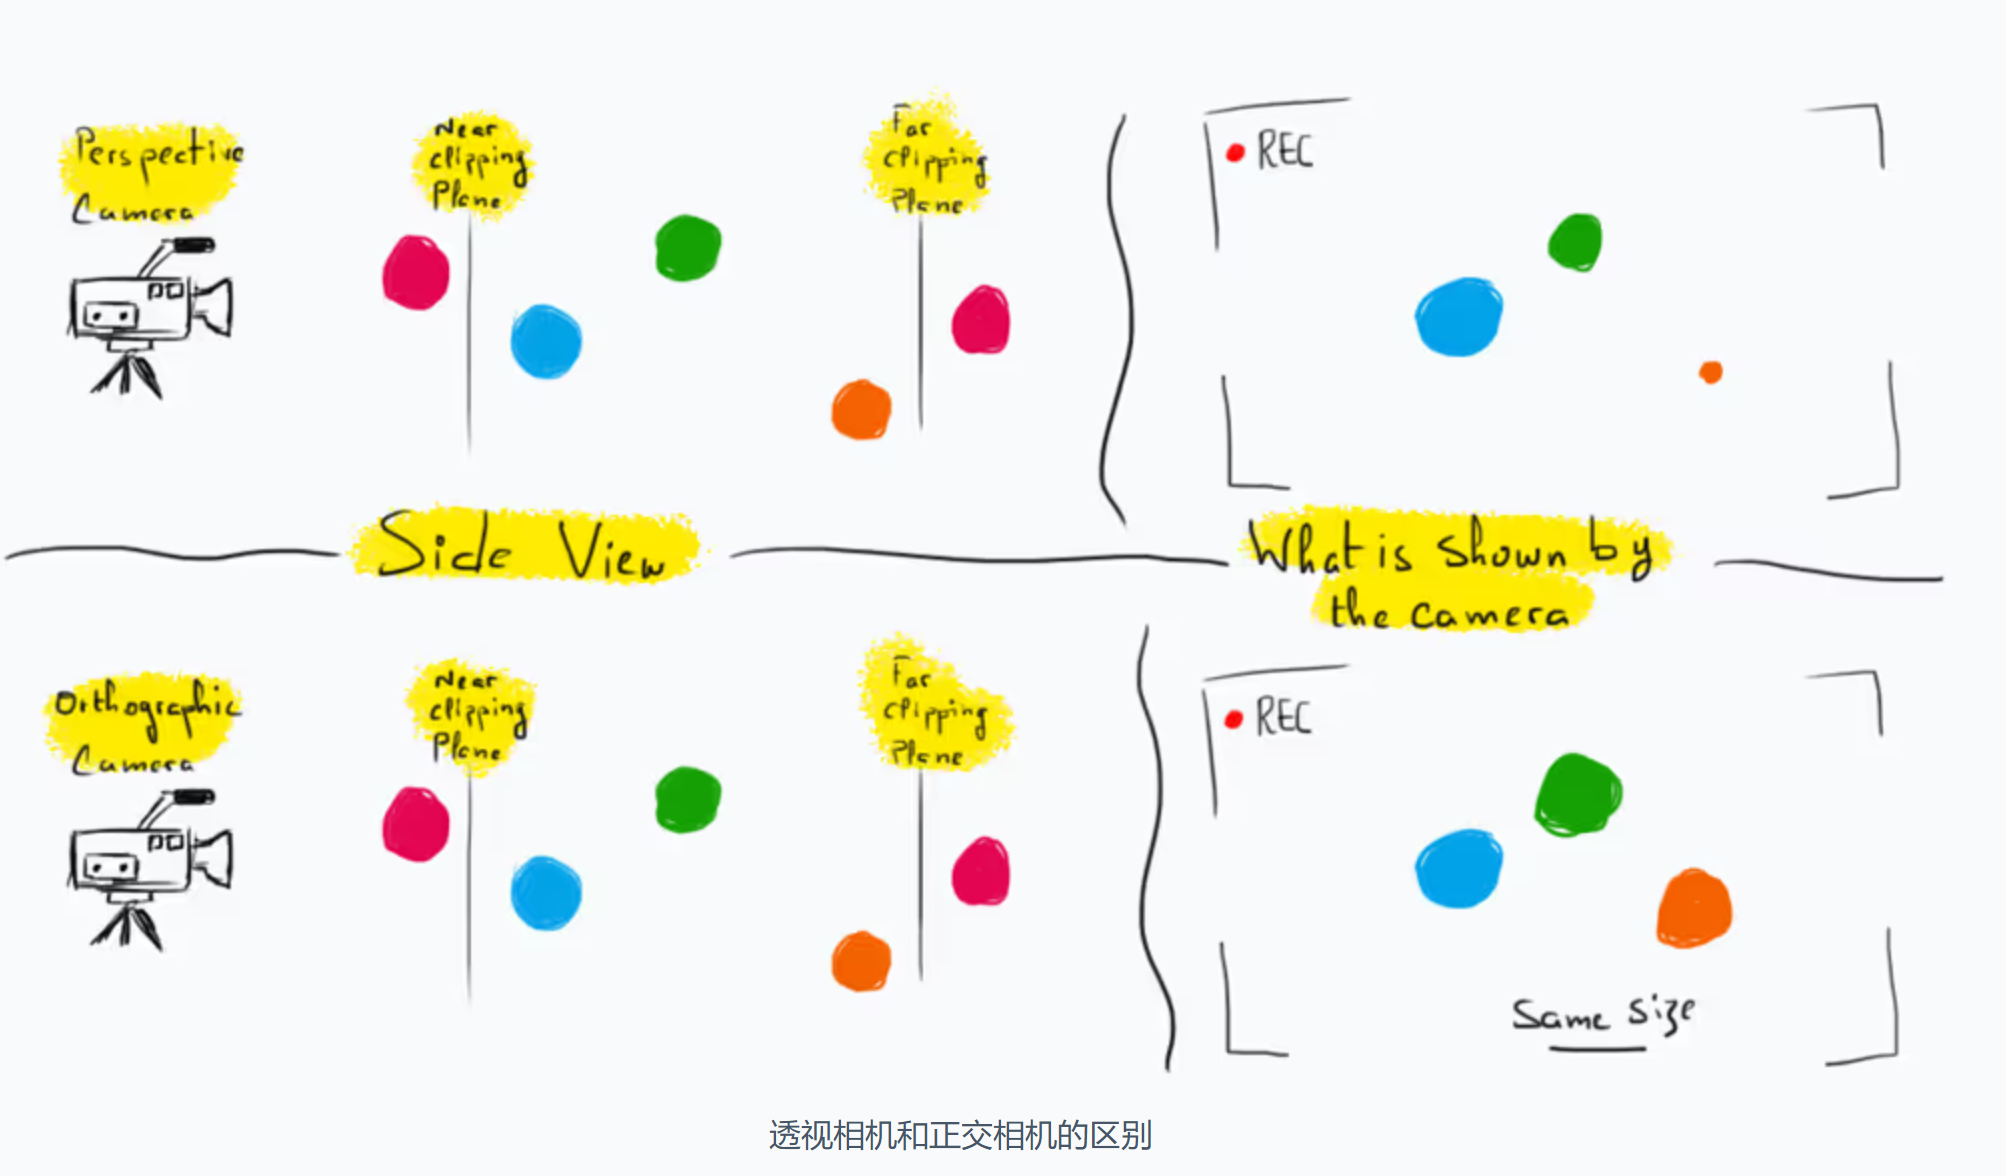 Perspective
Camera
Near
clipping
Plane
Far
clipping
Plane
REC
Side View
What is shown by
the camera
Orthographic
Camera
Near
clipping
Plane
Far
clipping
Plane
REC
Same size
透视相机和正交相机的区别